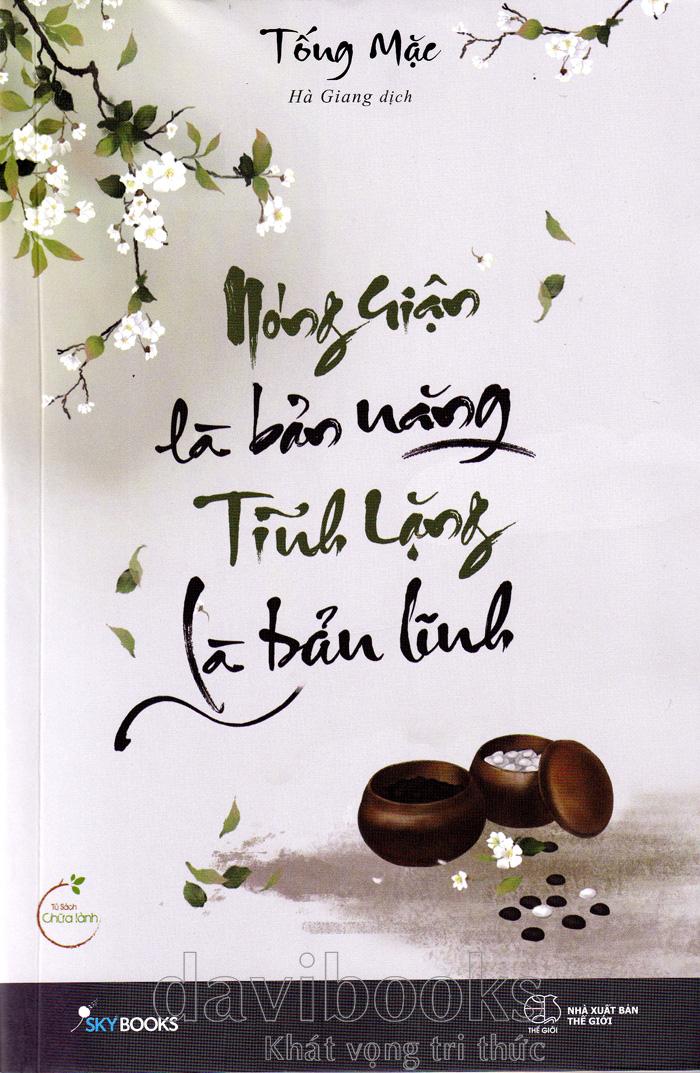 Tống Mặc
Hà Giang dịch
Nóng Giận
là bản năng
Tĩnh Lặng
Là bản lĩnh
Tủ Sách
Chữa lành
davibooks
Khát vọng tri thức
SKYBOOKS
THẾ GIỚI
NHÀ XUẤT BẢN
THẾ GIỚI